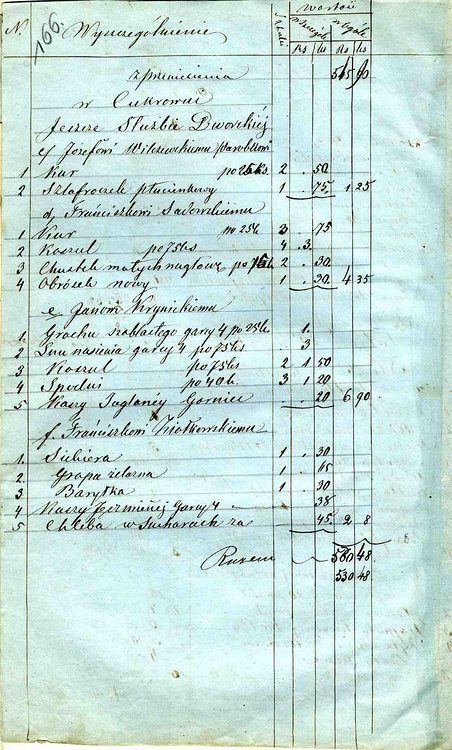 166.
N. Wyszczególnienie Sztuki Wartość
w szczególe w ogóle
Rs ks Rs ks
z przeniesienia 515 60
w Cukrowni
Jeszcze Służbie Dworskiéj
c/ Józefowi Wilczewskiemu Parobkowi
1 Kur po 25 ks. 2 . 50
2 Szlafroczek płucienkowy 1 . 75. 1 25
d, Franciszkowi Sadowskiemu
1 Kur po 25 k. 3 . 75
2 Koszul po 75 ks 4 . 3.
3 Chustek małych na głowę po 15 k. 2 . 30
4 Obrósek nowy 1 . 30. 4 35
e, Janowi Krynickiemu
1. Grochu szablastego garcy 4 po 25 k. 1.
2. Lnu nasienia garcy 4 po 75 ks . 3
3 Koszul po 75 ks 2 1 50
4 Spodni po 40 k. 3 1 20
5 Kaszy Jaglanéj Garniec . . 20 6 90
f. Franciszkowi Ziołkowskiemu
1. Siekiera 1 . 30
2. Grapa żelazna 1 . 65
3 Baryłka 1 . 30
4 Kaszy Jęczmiennéj Garcy 4 - 38
5 Chleba w Sucharach za 45. 2 8
Razem 580 48
530 48